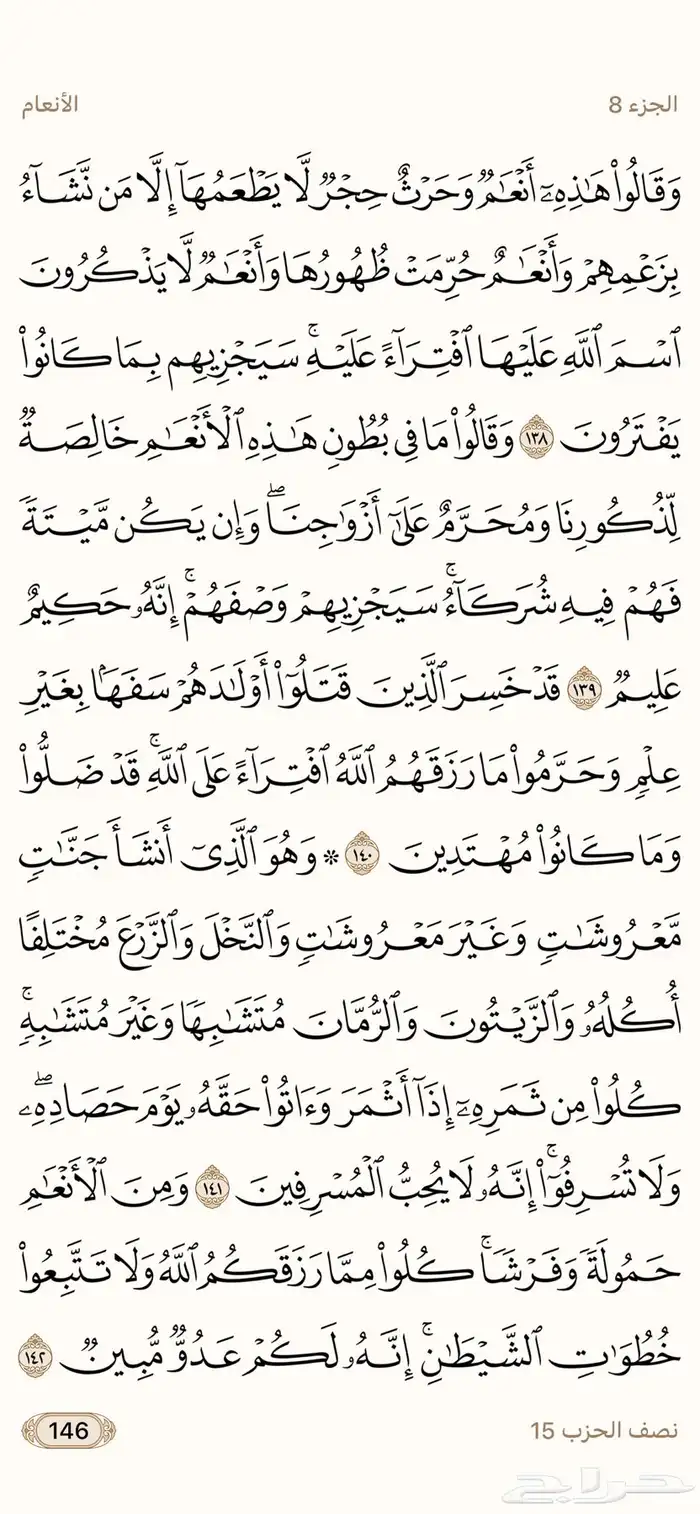 الجزء 8
الأنعام
وَقَالُوا۟ هَـٰذِهِۦٓ أَنْعَـٰمٌۭ وَحَرْثٌ حِجْرٌۭ لَّا يَطْعَمُهَآ إِلَّا مَن نَّشَآءُ
بِزَعْمِهِمْ وَأَنْعَـٰمٌ حُرِّمَتْ ظُهُورُهَا وَأَنْعَـٰمٌۭ لَّا يَذْكُرُونَ
ٱسْمَ ٱللَّهِ عَلَيْهَا ٱفْتِرَآءً عَلَيْهِ ۚ سَيَجْزِيهِم بِمَا كَانُوا۟
يَفْتَرُونَ ١٣٨ وَقَالُوا۟ مَا فِى بُطُونِ هَـٰذِهِ ٱلْأَنْعَـٰمِ خَالِصَةٌۭ
لِّذُكُورِنَا وَمُحَرَّمٌ عَلَىٰٓ أَزْوَٰجِنَا ۖ وَإِن يَكُن مَّيْتَةًۭ
فَهُمْ فِيهِ شُرَكَآءُ ۚ سَيَجْزِيهِمْ وَصْفَهُمْ ۚ إِنَّهُۥ حَكِيمٌ
عَلِيمٌۭ ١٣٩ قَدْ خَسِرَ ٱلَّذِينَ قَتَلُوٓا۟ أَوْلَـٰدَهُمْ سَفَهًۢا بِغَيْرِ
عِلْمٍۢ وَحَرَّمُوا۟ مَا رَزَقَهُمُ ٱللَّهُ ٱفْتِرَآءً عَلَى ٱللَّهِ ۚ قَدْ ضَلُّوا۟
وَمَا كَانُوا۟ مُهْتَدِينَ ١٤٠ ۞ وَهُوَ ٱلَّذِىٓ أَنشَأَ جَنَّـٰتٍۢ
مَّعْرُوشَـٰتٍۢ وَغَيْرَ مَعْرُوشَـٰتٍۢ وَٱلنَّخْلَ وَٱلزَّرْعَ مُخْتَلِفًا
أُكُلُهُۥ وَٱلزَّيْتُونَ وَٱلرُّمَّانَ مُتَشَـٰبِهًۭا وَغَيْرَ مُتَشَـٰبِهٍۢ ۚ
كُلُوا۟ مِن ثَمَرِهِۦٓ إِذَآ أَثْمَرَ وَءَاتُوا۟ حَقَّهُۥ يَوْمَ حَصَادِهِۦ ۖ
وَلَا تُسْرِفُوٓا۟ ۚ إِنَّهُۥ لَا يُحِبُّ ٱلْمُسْرِفِينَ ١٤١ وَمِنَ ٱلْأَنْعَـٰمِ
حَمُولَةًۭ وَفَرْشًۭا ۚ كُلُوا۟ مِمَّا رَزَقَكُمُ ٱللَّهُ وَلَا تَتَّبِعُوا۟
خُطُوَٰتِ ٱلشَّيْطَـٰنِ ۚ إِنَّهُۥ لَكُمْ عَدُوٌّۭ مُّبِينٌۭ ١٤٢
نصف الحزب 15
146
حراج